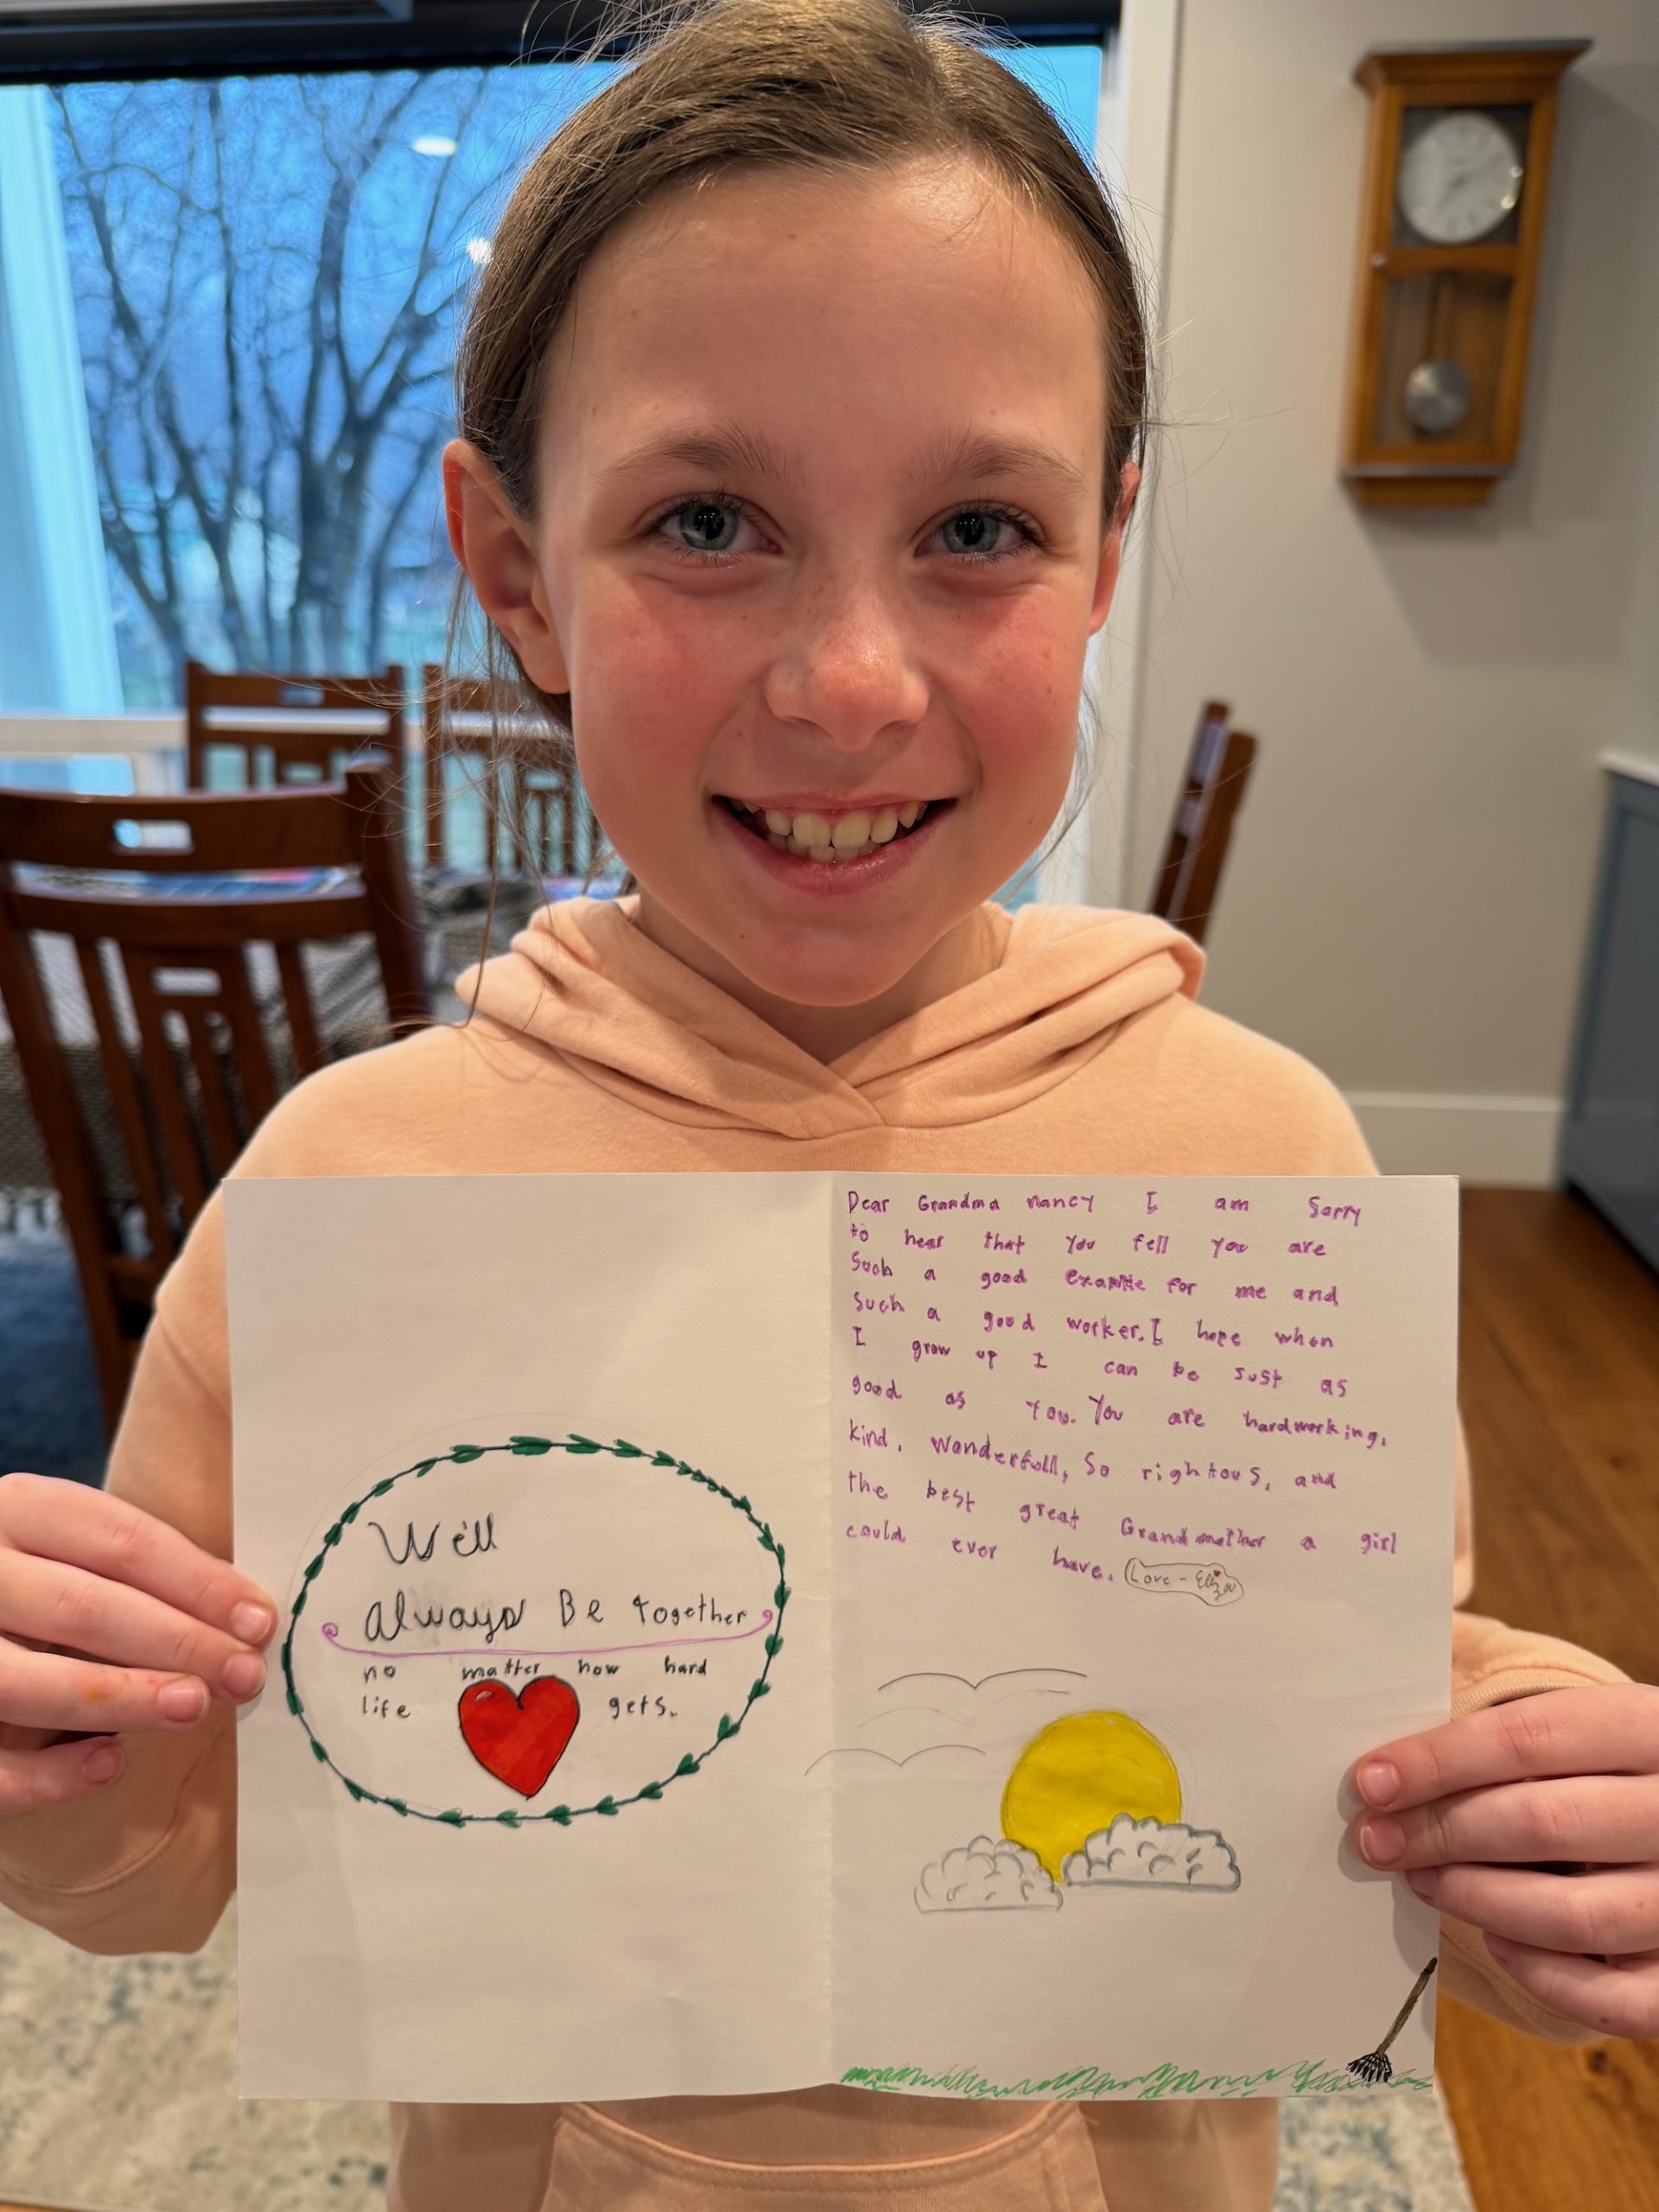 We'll
always Be together
no matter how hard
life gets.
Dear Grandma nancy I am Sorry
to hear that you fell you are
Such a good example for me and
such a good worker. I hope when
I grow up I can be Just as
good as You. You are hardworking,
kind, Wonderfull, So rightous, and
the best great Grandmother a girl
could ever have.
Love -